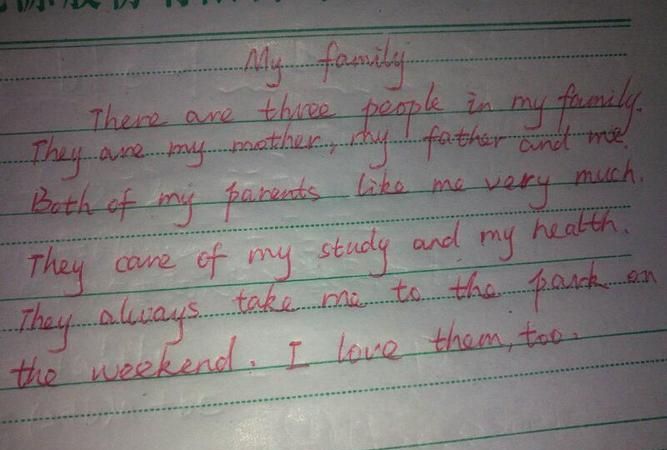 My family
There are three people in my family.
They are my mother, my father and me.
Both of my parents like me very much.
They care of my study and my health.
They always take me to the park on
the weekend. I love them, too.